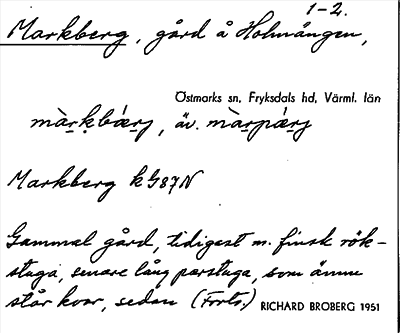 1-2.
Markberg, gård å Holmängen,
Östmarks sn, Fryksdals hd, Värml. län
màrkbárj, äv. màrpárj
Markberg kG87N
Gammal gård, tidigest m. finsk rök-
stuga, senare lång parstuga, som ännu
står kvar, sedan (Forts.)
RICHARD BROBERG 1951